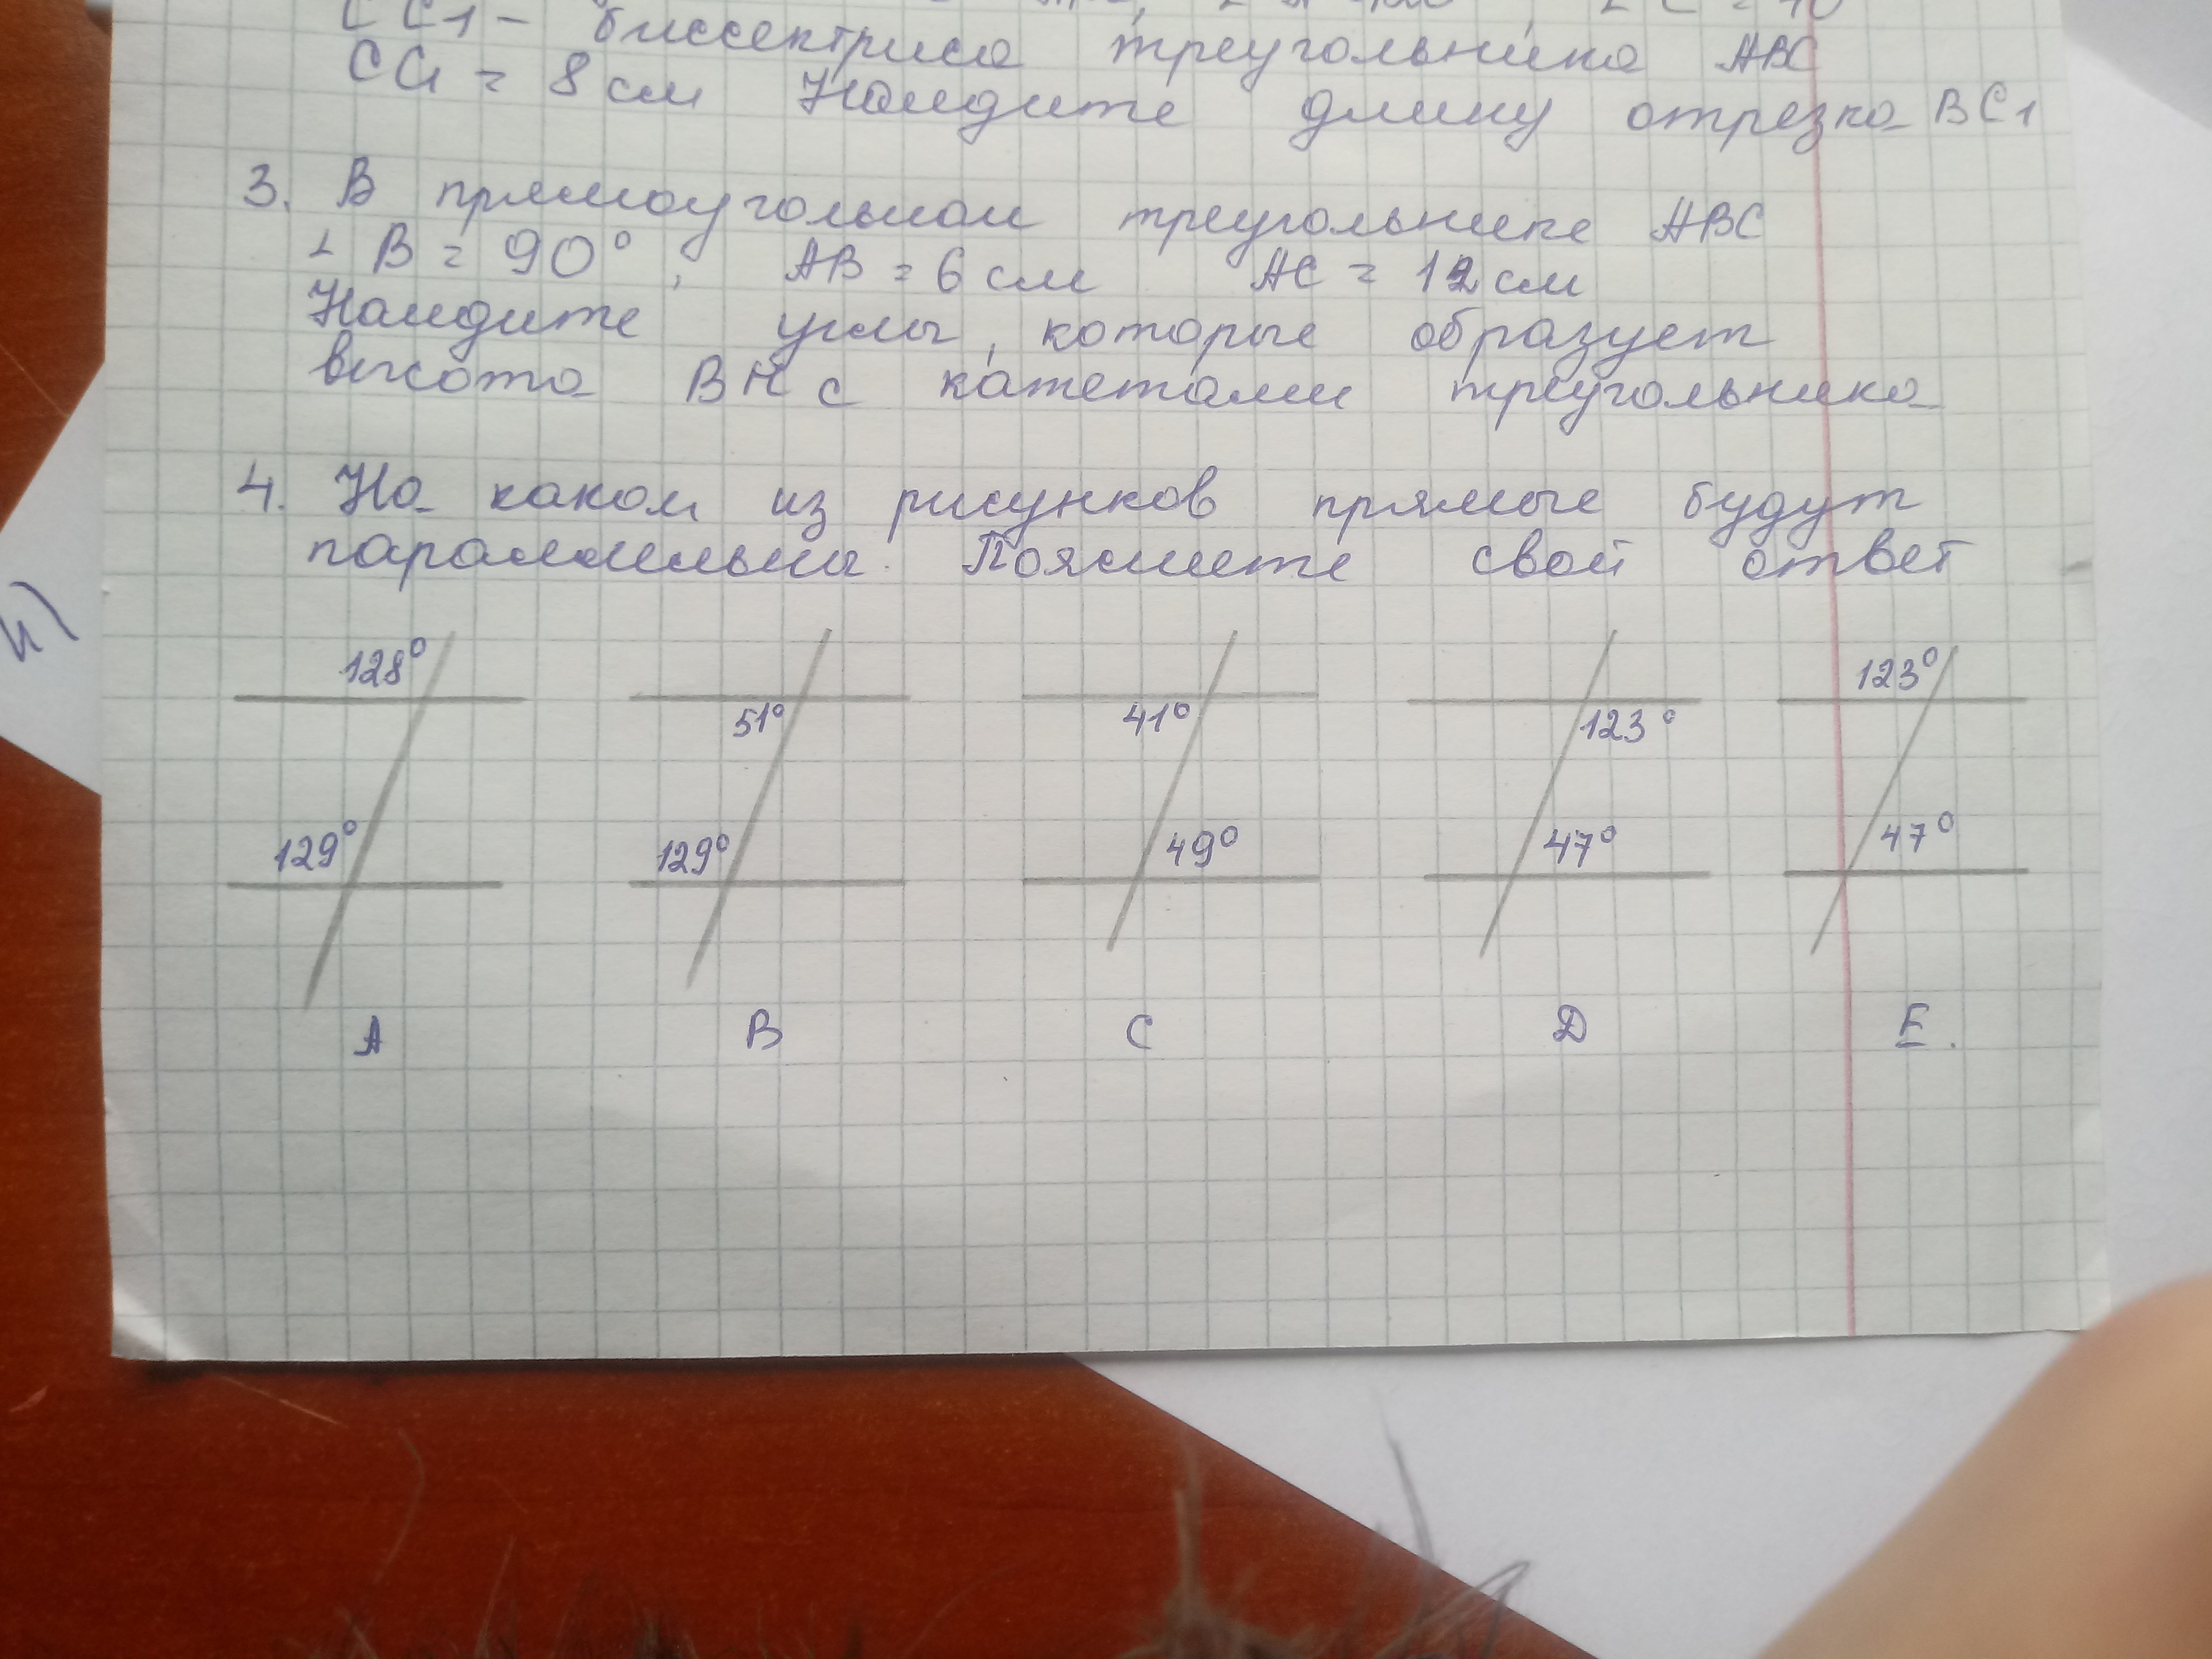 CC1 - биссектриса треугольника ABC
CC1 = 8 см Найдите длину отрезка BC1
3. В прямоугольном треугольнике ABC
∟ B = 90°, AB = 6 см AC = 12 см
Найдите углы, которые образует
высота BH с катетами треугольника
4. На каком из рисунков прямые будут
параллельны. Поясните свой ответ
128° 51° 41° 123° 123°
129° 129° 49° 47° 47°
A B C D E.